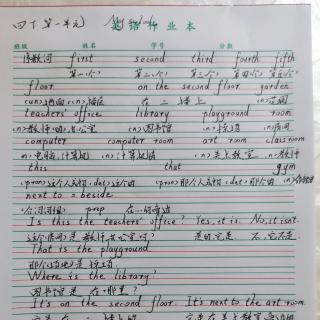 四下 第一单元
英语作业本
班级 姓名 学号 分数
序数词 first second third fourth fifth
第一个 第二个 第三个 第四个 第五个
floor on the second floor garden
(n)地面;楼层 在二楼上 (n)花园
teachers' office library playground room
(n)教师办公室 (n)图书馆 (n)操场 (n)房间
computer computer room art room classroom
n.电脑,计算机 (n)计算机房 (n)美术教室 (n)教师
this that gym
(pron)这个人或物;(det)这个的 (pron)那个人或物;(det)那个的 (n)体育馆
next to = beside
prep 在…的旁边
Is this the teachers' office? Yes, it is. No, it isn't.
这个房间是教师办公室吗? 是的,它是. 不,它不是.
That is the playground.
那个场地是操场
Where is the library?
图书馆是在哪里?
It's on the second floor. It's next to the art room.